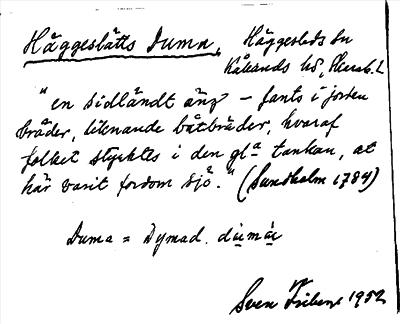 Häggeslätts Duma, Häggesleds sn
Kålands hd, Skarab. L
"en sidländt äng – fants i jorden
bräder, liknande båtbräder, hvaraf
folket styrktes i den gla tankan, at
här varit fordom sjö." (Sundholm 1784)
Duma = Dymad. dúmàc
Sven 1952